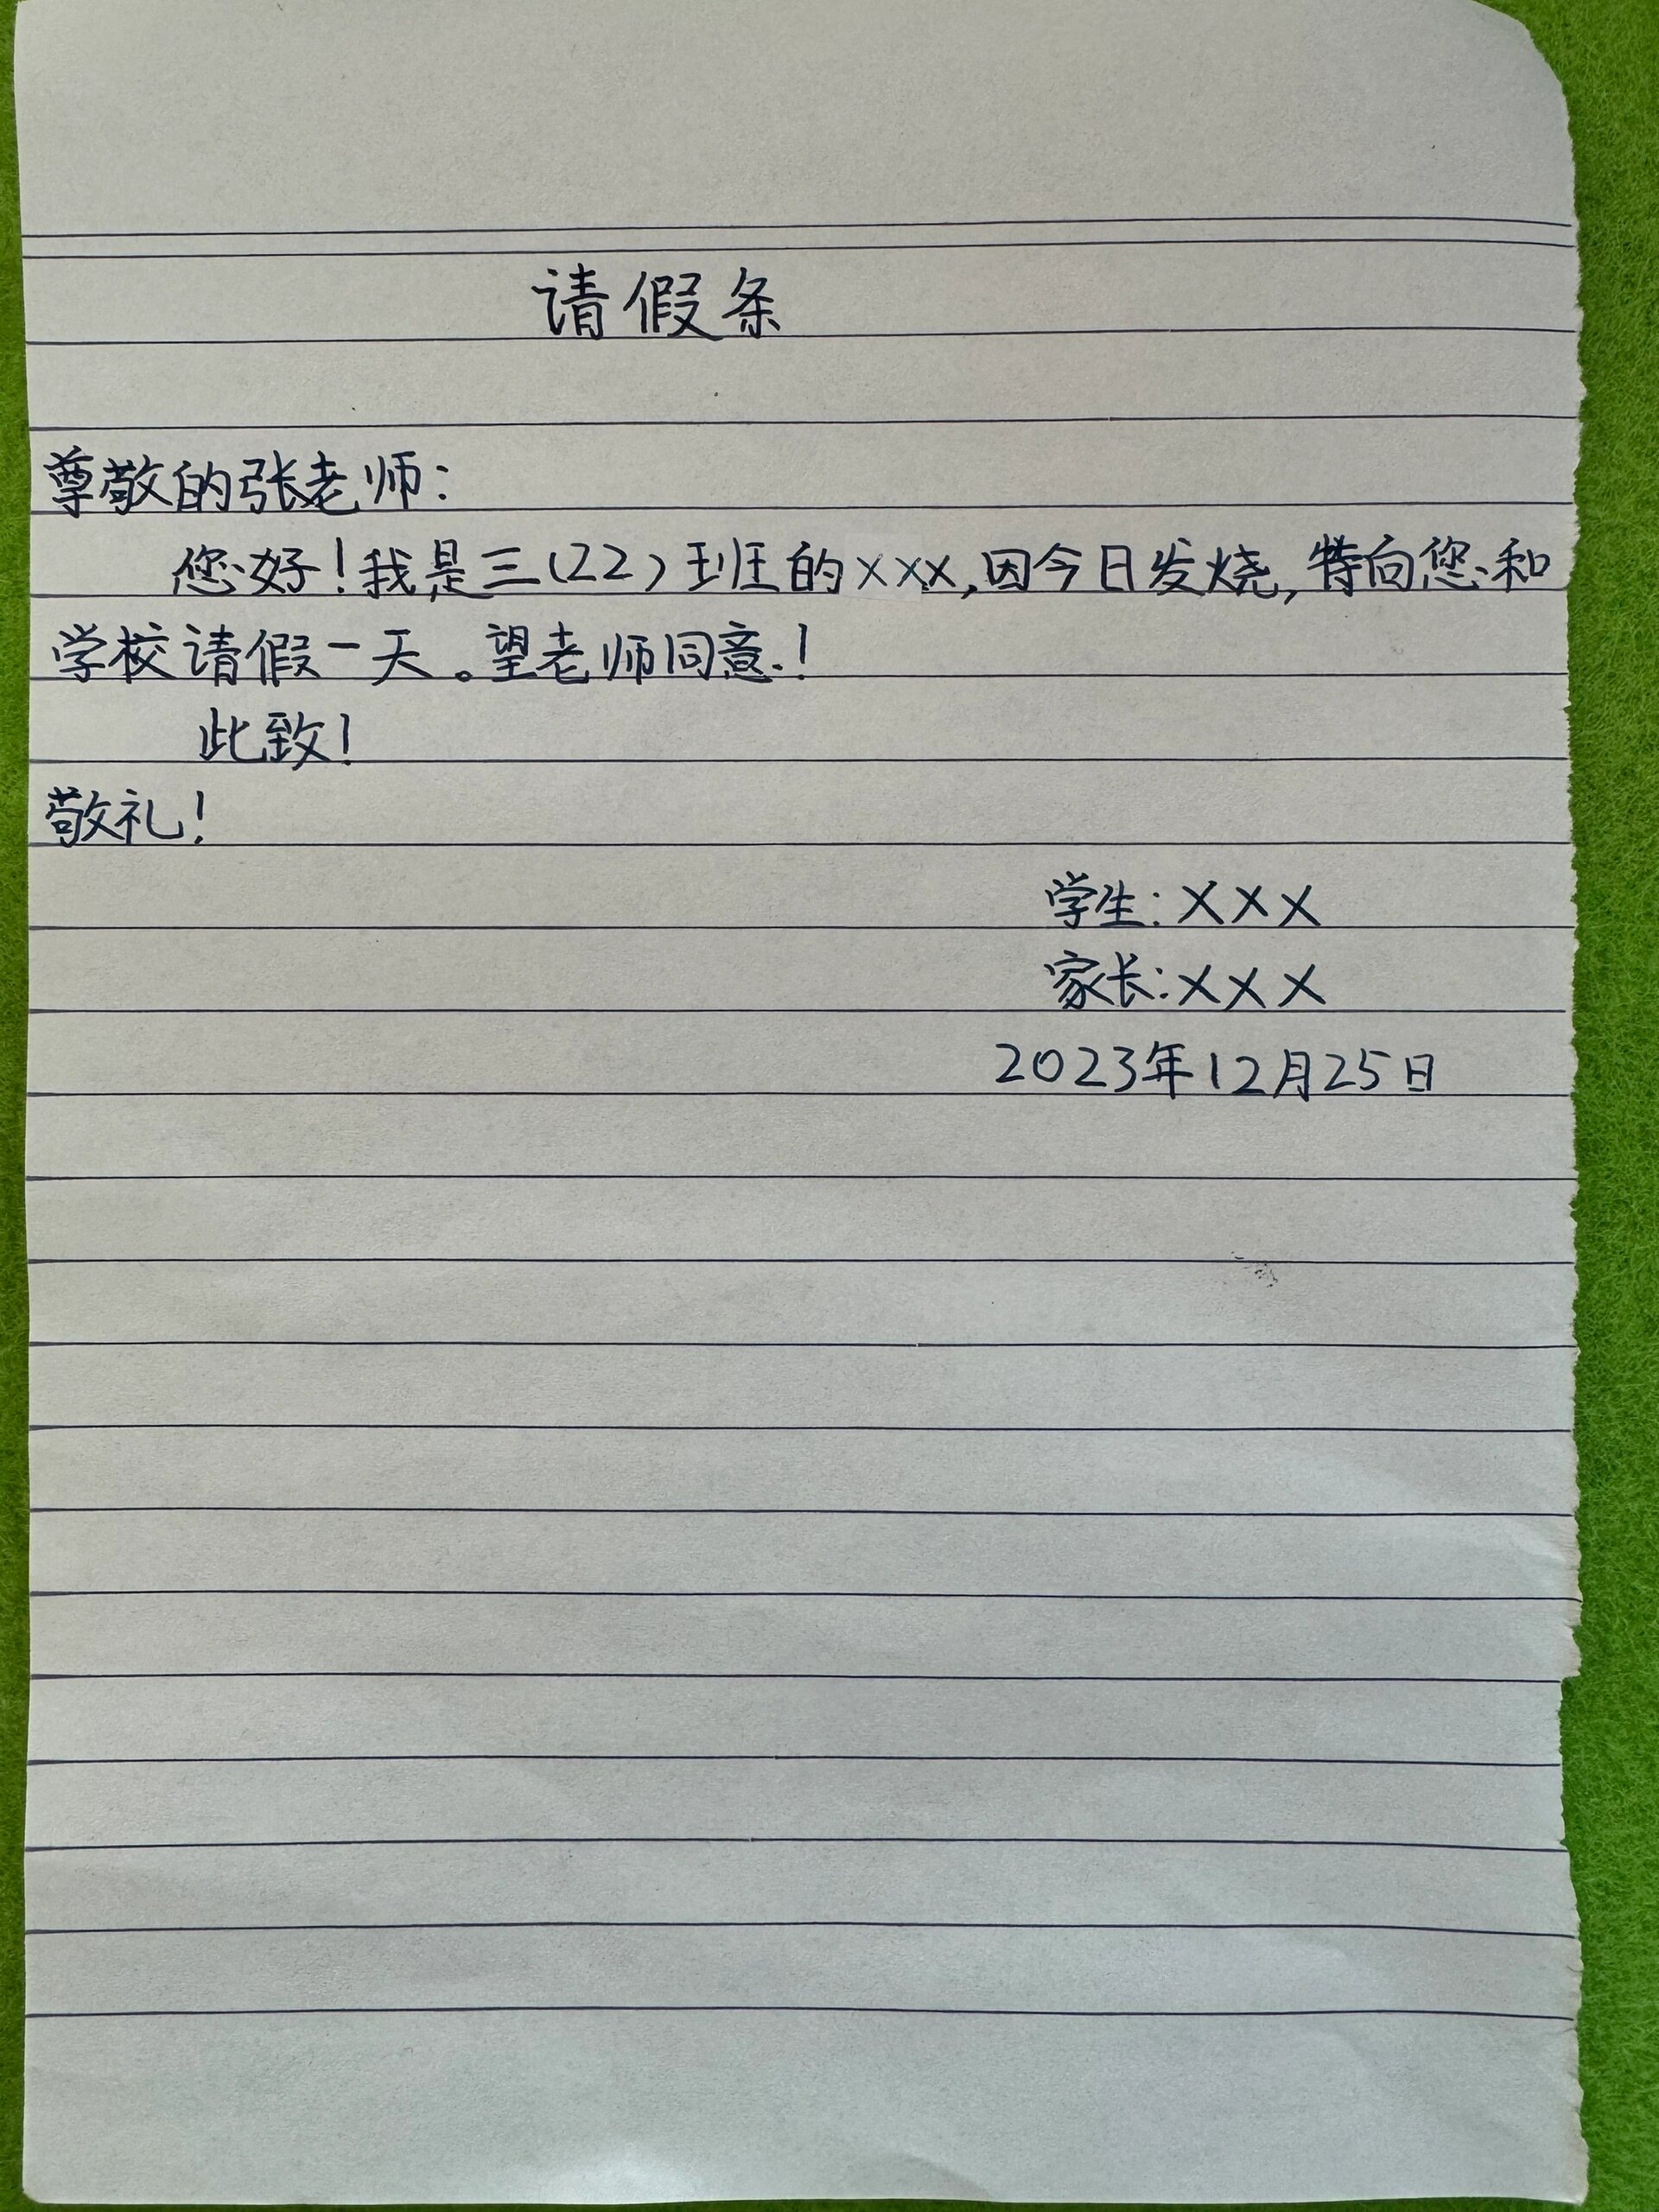 请假条
尊敬的张老师：
您好！我是三（22）班的xxx，因今日发烧，特向您和
学校请假一天。望老师同意！
此致！
敬礼！
学生：XXX
家长：XXX
2023年12月25日